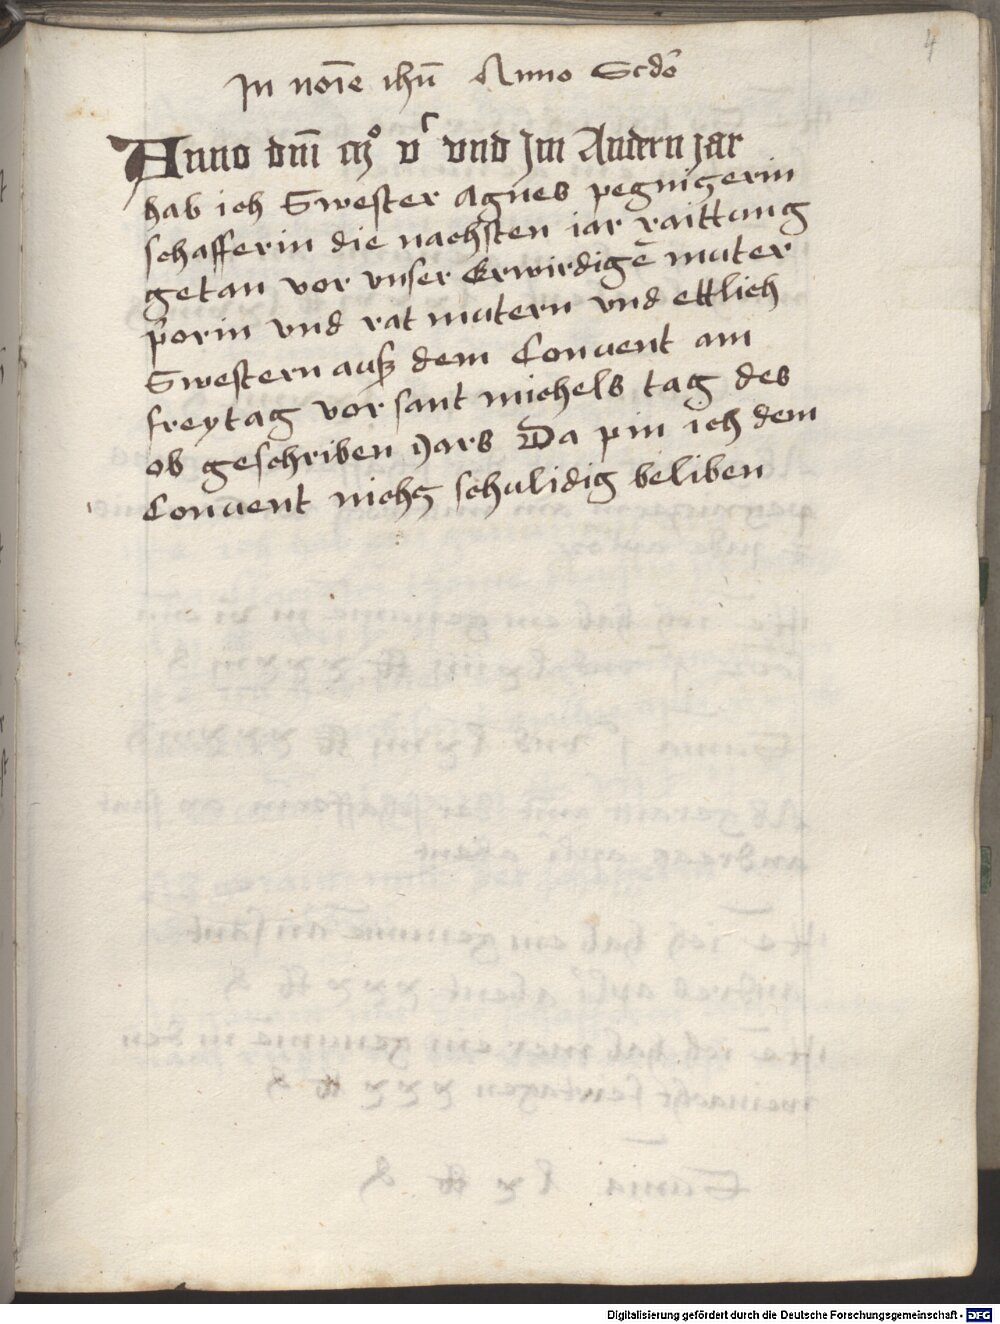 4
In noīe ihū Anno Scdō
Anno dm̄ mº vᶜ vnd Jm Andern jar
hab ich Swester Agnes pegnigerin
schafferin die nachsten iar raittung
getan vor vnser Erwirdigē muter
p̄orin vnd rat mutern vnd ettlich
Swestern auß dem Conuent am
freytag vor sant michels tag des
ob geschriben Jars Da pin ich dem
Conuent nichtz schulidig beliben
Digitalisierung gefördert durch die Deutsche Forschungsgemeinschaft - DFG